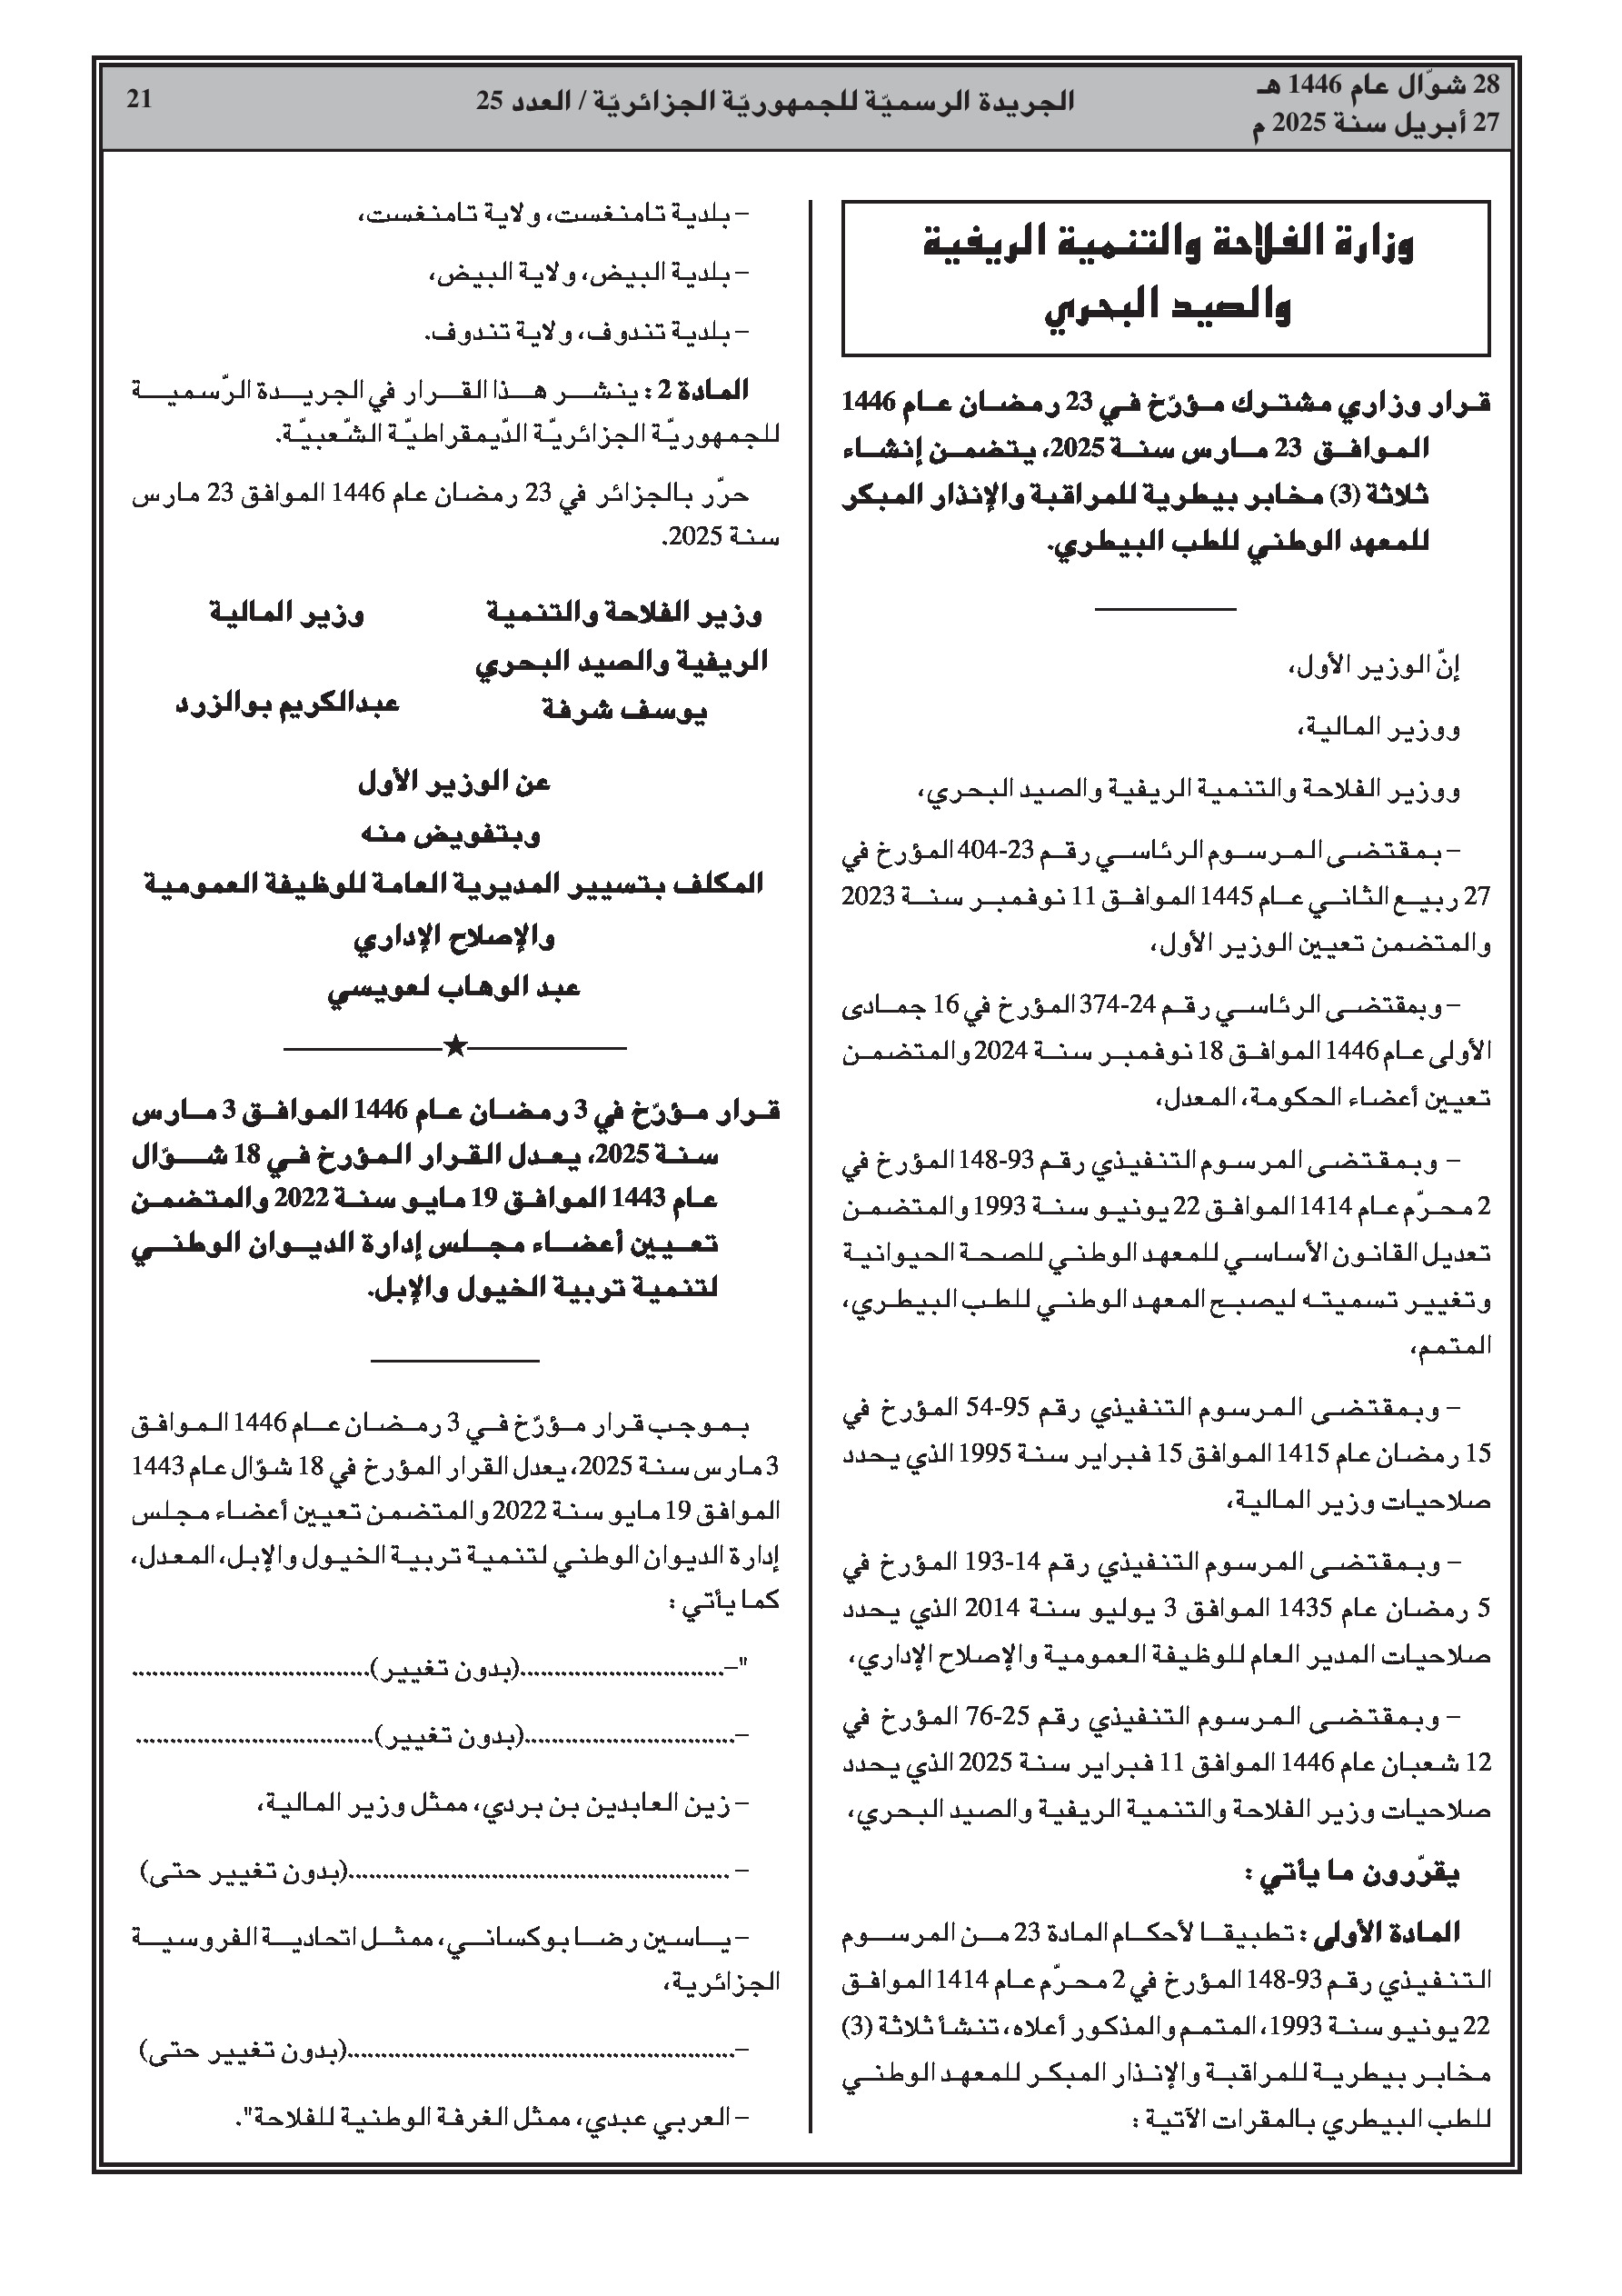 28 شوّال عام 1446 هـ
27 أبريل سنة 2025 م
الجريدة الرسميّة للجمهوريّة الجزائريّة / العدد 25
21
وزارة الفلاحة والتنمية الريفية
والصيد البحري
قرار وزاري مشترك مؤرّخ في 23 رمضان عام 1446
الموافق 23 مارس سنة 2025، يتضمن إنشاء
ثلاثة (3) مخابر بيطرية للمراقبة والإنذار المبكر
للمعهد الوطني للطب البيطري.
إنّ الوزير الأول،
ووزير المالية،
ووزير الفلاحة والتنمية الريفية والصيد البحري،
– بمقتضى المرسوم الرئاسي رقم 23-404 المؤرخ في
27 ربيع الثاني عام 1445 الموافق 11 نوفمبر سنة 2023
والمتضمن تعيين الوزير الأول،
– وبمقتضى الرئاسي رقم 24-374 المؤرخ في 16 جمادى
الأولى عام 1446 الموافق 18 نوفمبر سنة 2024 والمتضمن
تعيين أعضاء الحكومة، المعدل،
– وبمقتضى المرسوم التنفيذي رقم 93-148 المؤرخ في
2 محرّم عام 1414 الموافق 22 يونيو سنة 1993 والمتضمن
تعديل القانون الأساسي للمعهد الوطني للصحة الحيوانية
وتغيير تسميته ليصبح المعهد الوطني للطب البيطري،
المتمم،
– وبمقتضى المرسوم التنفيذي رقم 95-54 المؤرخ في
15 رمضان عام 1415 الموافق 15 فبراير سنة 1995 الذي يحدد
صلاحيات وزير المالية،
– وبمقتضى المرسوم التنفيذي رقم 14-193 المؤرخ في
5 رمضان عام 1435 الموافق 3 يوليو سنة 2014 الذي يحدد
صلاحيات المدير العام للوظيفة العمومية والإصلاح الإداري،
– وبمقتضى المرسوم التنفيذي رقم 25-76 المؤرخ في
12 شعبان عام 1446 الموافق 11 فبراير سنة 2025 الذي يحدد
صلاحيات وزير الفلاحة والتنمية الريفية والصيد البحري،
يقرّرون ما يأتي :
المادة الأولى : تطبيقا لأحكام المادة 23 من المرسوم
التنفيذي رقم 93-148 المؤرخ في 2 محرّم عام 1414 الموافق
22 يونيو سنة 1993، المتمم والمذكور أعلاه، تنشأ ثلاثة (3)
مخابر بيطرية للمراقبة والإنذار المبكر للمعهد الوطني
للطب البيطري بالمقرات الآتية :
– بلدية تامنغست، ولاية تامنغست،
– بلدية البيض، ولاية البيض،
– بلدية تندوف، ولاية تندوف.
المادة 2 : ينشر هذا القرار في الجريدة الرّسمية
للجمهوريّة الجزائريّة الدّيمقراطيّة الشّعبيّة.
حرّر بالجزائر في 23 رمضان عام 1446 الموافق 23 مارس
سنة 2025.
وزير الفلاحة والتنمية
الريفية والصيد البحري
يوسف شرفة
وزير المالية
عبدالكريم بوالزرد
عن الوزير الأول
وبتفويض منه
المكلف بتسيير المديرية العامة للوظيفة العمومية
والإصلاح الإداري
عبد الوهاب لعويسي
قرار مؤرّخ في 3 رمضان عام 1446 الموافق 3 مارس
سنة 2025، يعدل القرار المؤرخ في 18 شوّال
عام 1443 الموافق 19 مايو سنة 2022 والمتضمن
تعيين أعضاء مجلس إدارة الديوان الوطني
لتنمية تربية الخيول والإبل.
بموجب قرار مؤرّخ في 3 رمضان عام 1446 الموافق
3 مارس سنة 2025، يعدل القرار المؤرخ في 18 شوّال عام 1443
الموافق 19 مايو سنة 2022 والمتضمن تعيين أعضاء مجلس
إدارة الديوان الوطني لتنمية تربية الخيول والإبل، المعدل،
كما يأتي :
"–..............................(بدون تغيير)...................................
–...............................(بدون تغيير)...................................
– زين العابدين بن بردي، ممثل وزير المالية،
– ........................................................(بدون تغيير حتى)
– ياسين رضا بوكساني، ممثل اتحادية الفروسية
الجزائرية،
–.........................................................(بدون تغيير حتى)
– العربي عبدي، ممثل الغرفة الوطنية للفلاحة".